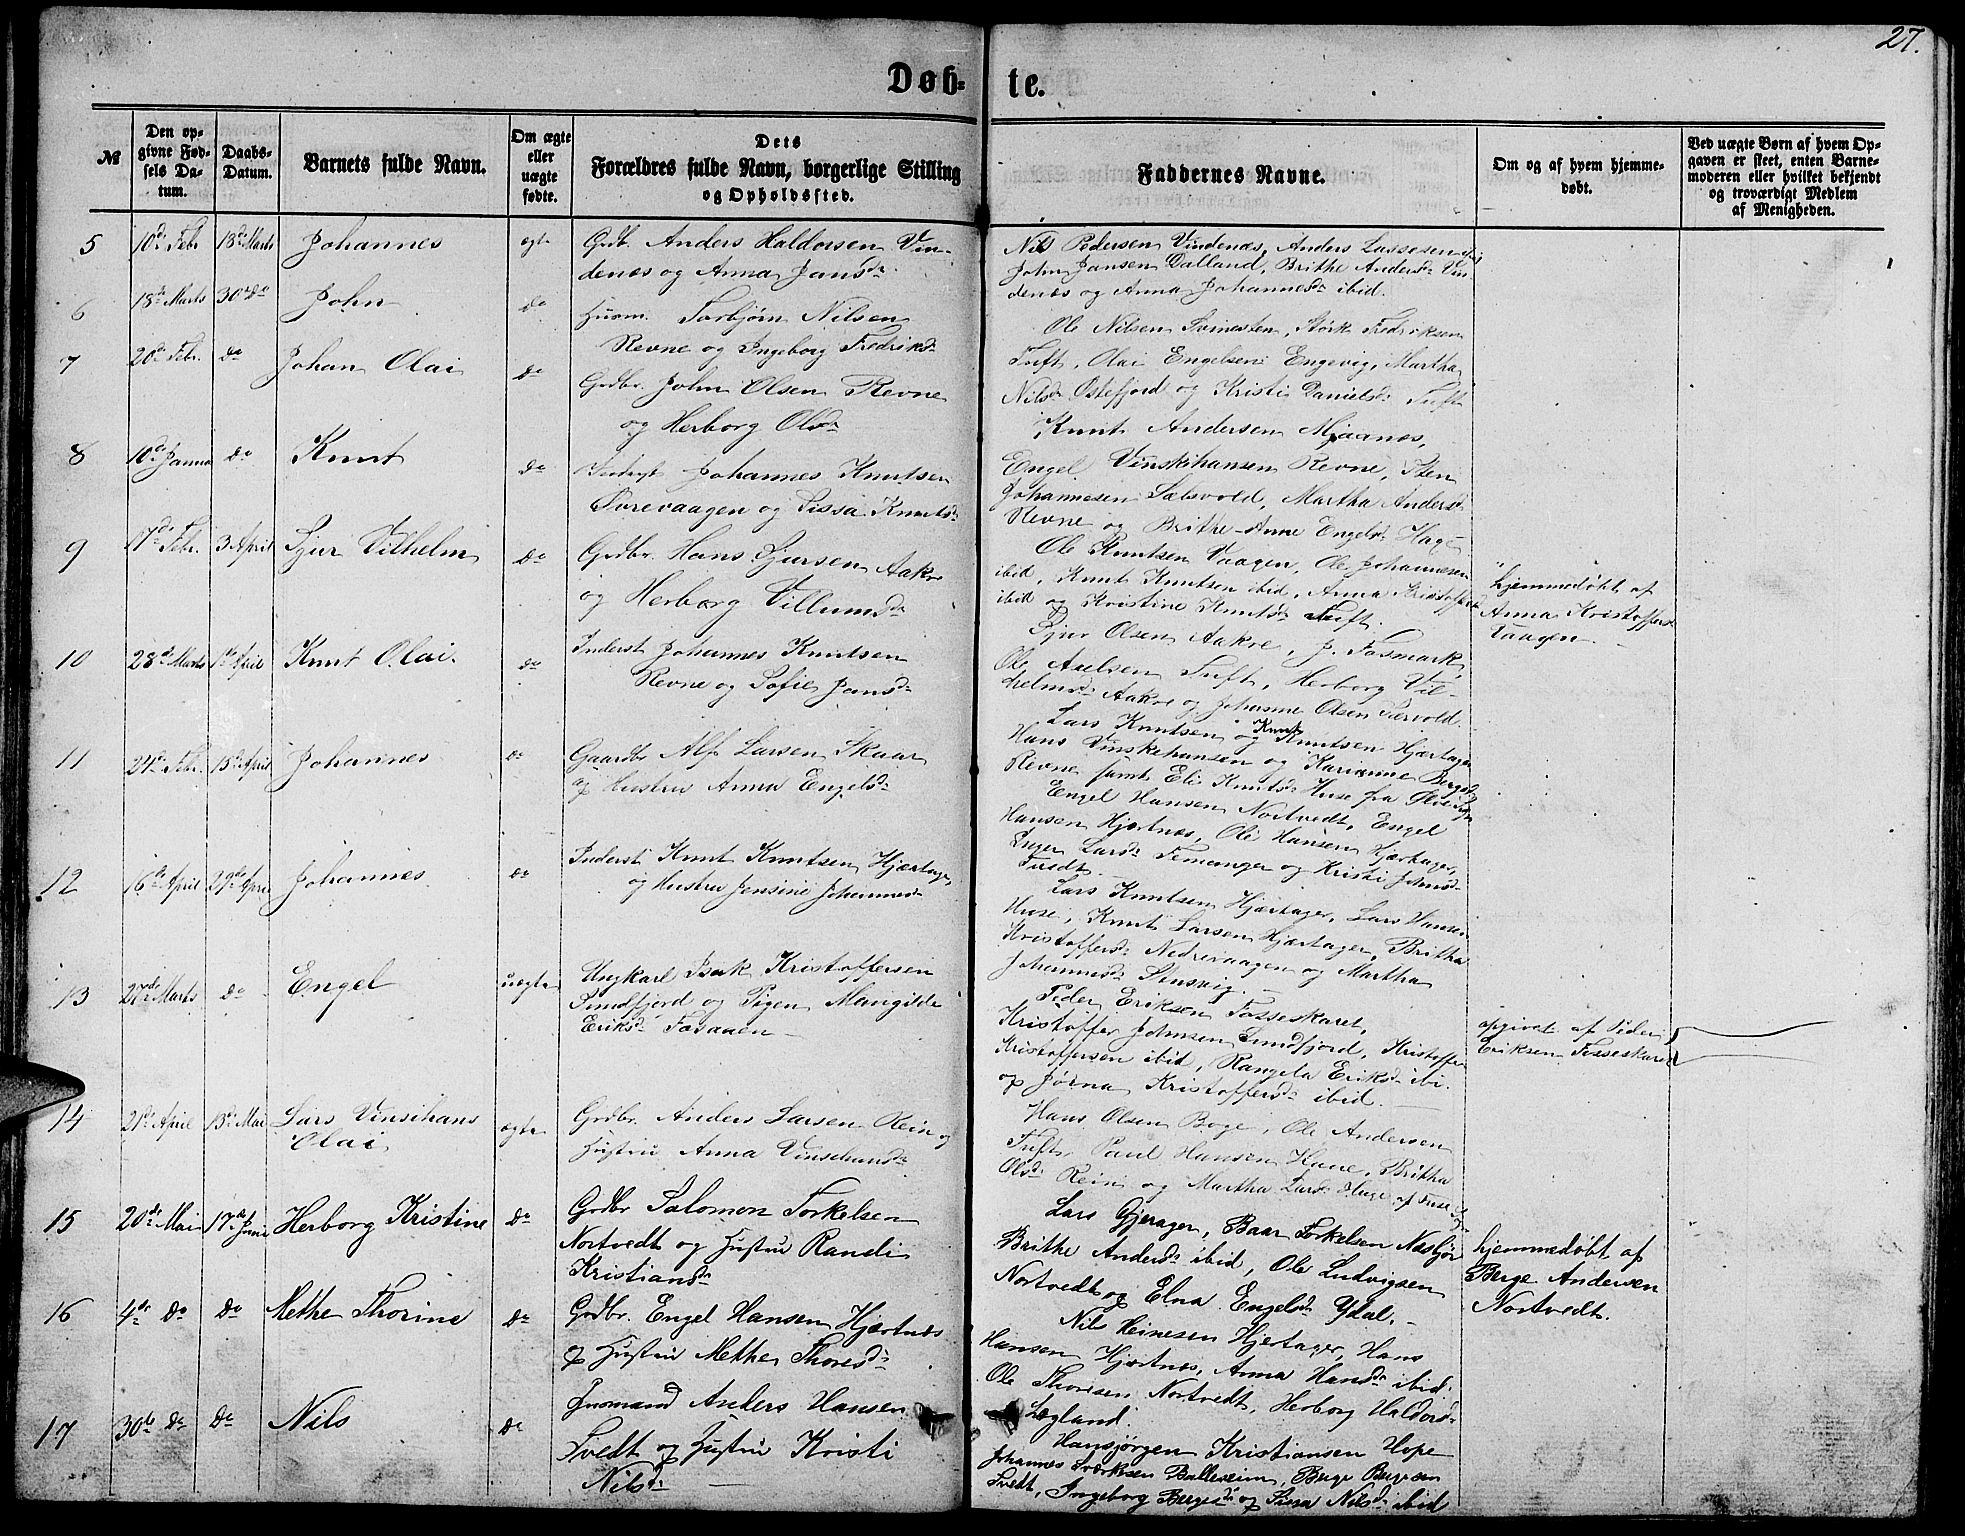 27.
Døb- te.
№
Den op-
givne Fød-
sels Da-
tum.
Daabs-
Datum.
Barnets fulde Navn.
Om ægte
eller
uægte
fødte.
Dets
Forældres fulde Navn, borgerlige Stilling
og Opholdssted.
Faddernes Navne.
Om og af hvem hjemme-
døbt.
Ved uægte Børn af hvem Op-
gaven er skeet, enten Barne-
moderen eller hvilket bekjendt
og troværdigt Medlem
af Menigheden.
5 10de Febr 18de Marts Johannes ægte
Grdbr. Anders Haldorsen Vin-
denæs og Anna Jansdr.
Nils Pedersen Vindenæs, Anders Lassesen
John Jansen Dalland, Brithe Andersdr Vin
denæs og Anna Johannesdr ibid.
6 18de Marts 30te do John do
Huusm. Torbjørn Nilsen
Revne og Ingeborg Fredriksdr
Ole Nilsen Svinesten, Størk Fredriksen
Tuft, Olai Engelsen Engevig, Martha
Nilsdr Ostefjord og Kristi Danielsdr Tuft
7 20de Febr. do Johan Olai do
Grdbr. John Olsen Revne
og Herborg Olsdr
Knut Andersen Mjaanes,
Engel Vinskihansen Revne, Sten
Johannesen Sælsvold, Martha Andersdr
Revne og Brithe-Anne Engelsdr Hage
8 10de Janua do Knut do
Inderst Johannes Knutsen
Ørevaagen og Sissa Knutsdr
Ole Knutsen Vaagen, Ole Johannesen
ibid, Knut Knutsen ibid, Anna Kristoffersdr
ibid og Kristine Knutsdr Tuft.
hjemmedøbt af
Anna Kristoffersdr
Vaagen
9 17de Febr. 3 April Sjur Vilhelm do
Grdbr. Hans Sjursen Aakre
og Herborg Villumsdr
Sjur Olsen Aakre, J. Fosmark,
Ole Axelsen Tuft, Herborg Vil-
helmsdr Aakre og Johanne Olsen Sævold.
10 28de Marts 1ste April Knut Olai. do
Inderst Johannes Knutsen
Revne og Sofie Jansdr
Lars Knutsen og Knut Knutsen Hjærtager
Hans Vinskehansen og Karianne Bergesdr
Revne samt Eli Knutsdr Huse fra
11 24de Febr. 15de April Johannes do
Gaardbr Alf Larsen Skaar
og Hustru Anna Engelsdr
Engel Hansen Nortvedt, Engel
Hansen Hjærtnæs, Ole Hansen Hjærtager,
Inger Larsdr Femanger og Kristi Johnsdr
Tvedt.
12 16de April 29de April Johannes do
Inderst Knut Knutsen Hjærtager,
og Hustru Jensine Johannesdr
Lars Knutsen Hjærtager, Lars Hansen
Huse, Knut Larsen Hjærtager, Britha
Kristoffersdr Nedrevaagen og Martha
Johannesdr Stusvig.
13 27de Marts do Engel uægte
Ungkarl Isak Kristoffersen
Sundfjord og Pigen Mangilde
Eriksdr Fosaaen
Peder Eriksen Fosseskaret,
Kristoffer Johnsen Sundfjord, Kristoffer
Kristoffersen ibid, Rangela Eriksdr ibi.
og Jørna Kristoffersdr ibid.
opgivet af Peder
Eriksen Fosseskaret
14 21de April 13de Mai Lars Vinsihans
Olai ægte
Grdbr. Anders Larsen Rein og
Hustru Anna Vinsehansdr
Hans Olsen Boge, Ole Andersen
Tuft, Paul Hansen Hane, Britha
Olsdr Rein og Martha Larsdr Huge af Fuse
15 20de Mai 17de Juni Herborg Kristine do
Grdbr Salomon Torkelsen
Nortvedt og Hustru Randi
Kristiansdr
Lars Gjerager, Baar Torkelsen Næsbjør
Brithe Andersdr ibid, Ole Ludvigsen
Nortvedt og Elna Engelsdr Ydal.
hjemmedøbt af
Berge Andersen
Nortvedt.
16 4de do do Methe Thorine do
Grdbr. Engel Hansen Hjærtnæs
og Hustru Methe Thoresdr
Nils Heinesen Hjertager, Hans
Hansen Hjærtnæs, Anna Hansdr ibid.
Ole Thoresen Nortvedt, Herborg Haldorsdr
Lægland.
17 30te do do Nils do
Huusmand Anders Hansen
Tvedt og Hustru Kristi
Nilsdr
Hansjørgen Kristiansen Hope
Johannes Sværkesen Balleseim, Berge Bergesen
Tvedt, Ingeborg Bergesdr og Nilsdr ibid